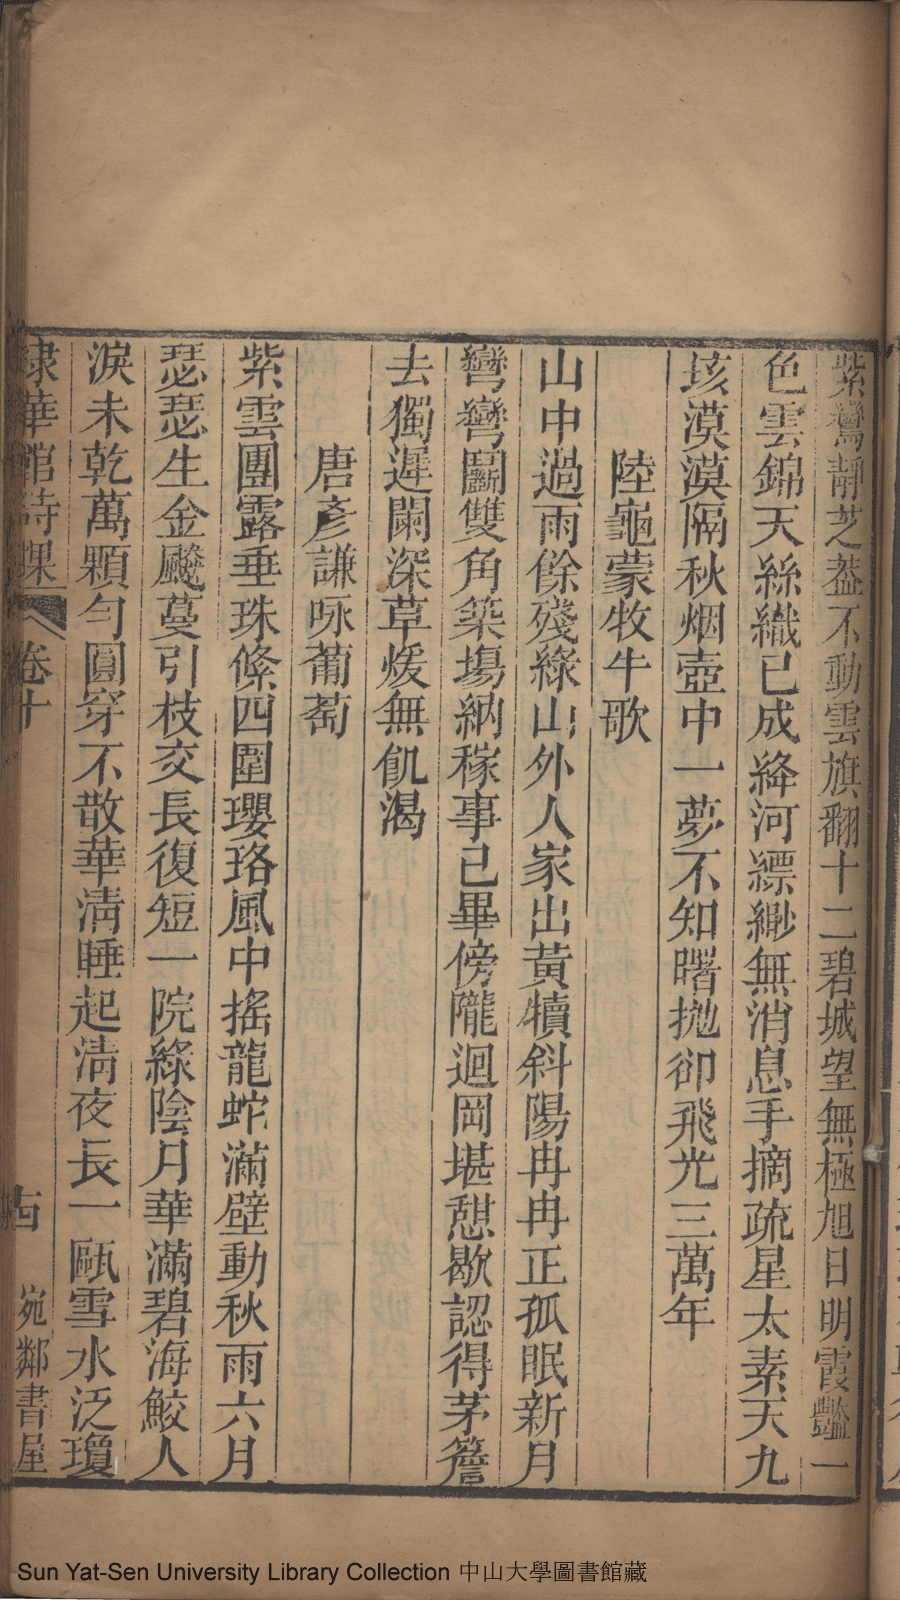 紫鸞靜芝葢不動雲旗翻十二碧城望無極旭日明霞豔一
色雲錦天絲織已成絳河縹緲無消息手摘疏星太素天九
垓漠漠隔秋烟壺中一夢不知曙拋卻飛光三萬年
陸龜蒙牧牛歌
山中過雨餘殘綠山外人家出黃犢斜陽冉冉正孤眠新月
彎彎鬭雙角築場納稼事已畢傍隴迴岡堪憇歇認得茅簷
去獨遲闌深草煖無飢渴
唐彥謙咏葡萄
紫雲團露垂珠絛四圍瓔珞風中搖龍蛇滿壁動秋雨六月
瑟瑟生金飈蔓引枝交長復短一院綠陰月華滿碧海鮫人
淚未乾萬顆勻圓穿不散華清睡起淸夜長一甌雪水泛瓊
棣華館詩課 卷十 十四 宛鄰書屋
Sun Yat-Sen University Library Collection 中山大學圖書館藏